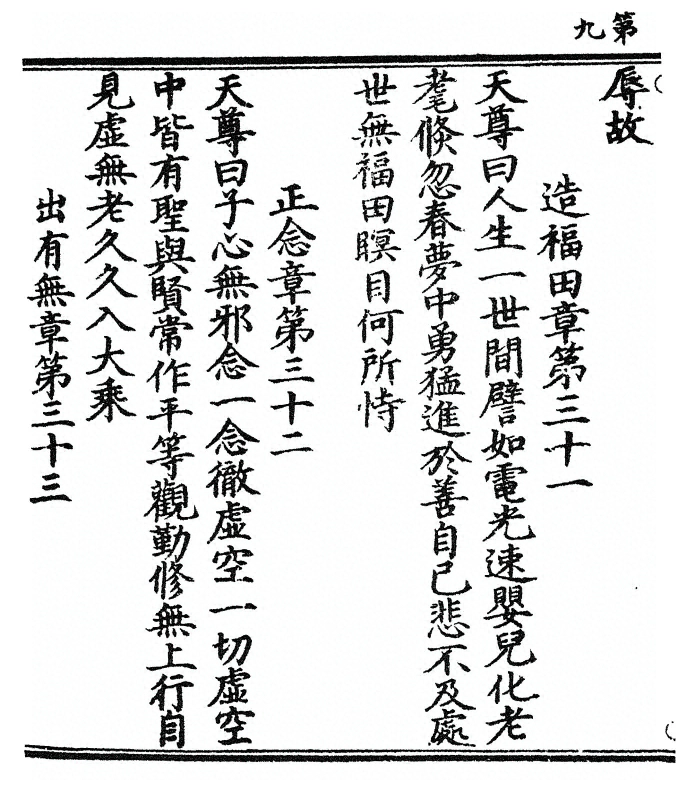 第九
辱故
造福田章第三十一
天尊曰人生一世間譬如電光速嬰兒化老
耄倐忽春夢中勇猛進於善自己悲不及處
世無福田瞑目何所恃
正念章第三十二
天尊曰子心無邪念一念徹虛空一切虛空
中皆有聖與賢常作平等觀勤修無上行自
見虛無老久久入大乘
出有無章第三十三